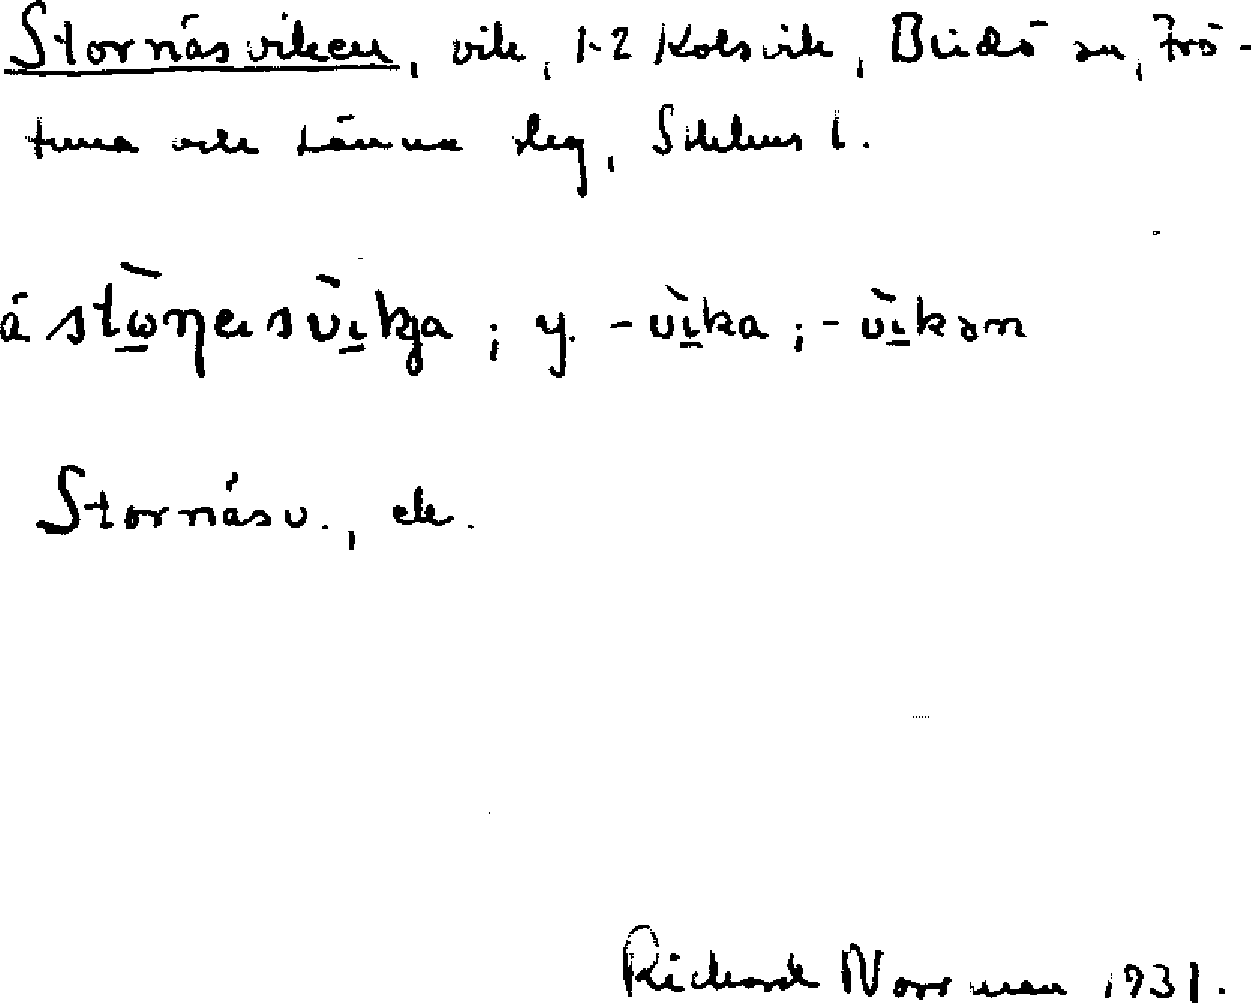 Stornäsviken, vik, 1-2 Kolsvik, Blidö sn, Frö-
tuna och Länna skg, Sthlms l.
á stὼ̠ŋεsvὶ̠kja ; y. -vὶ̠ka ; -vὶ̠kən
Stornäsv., ek.
Richard Norrman 1931.